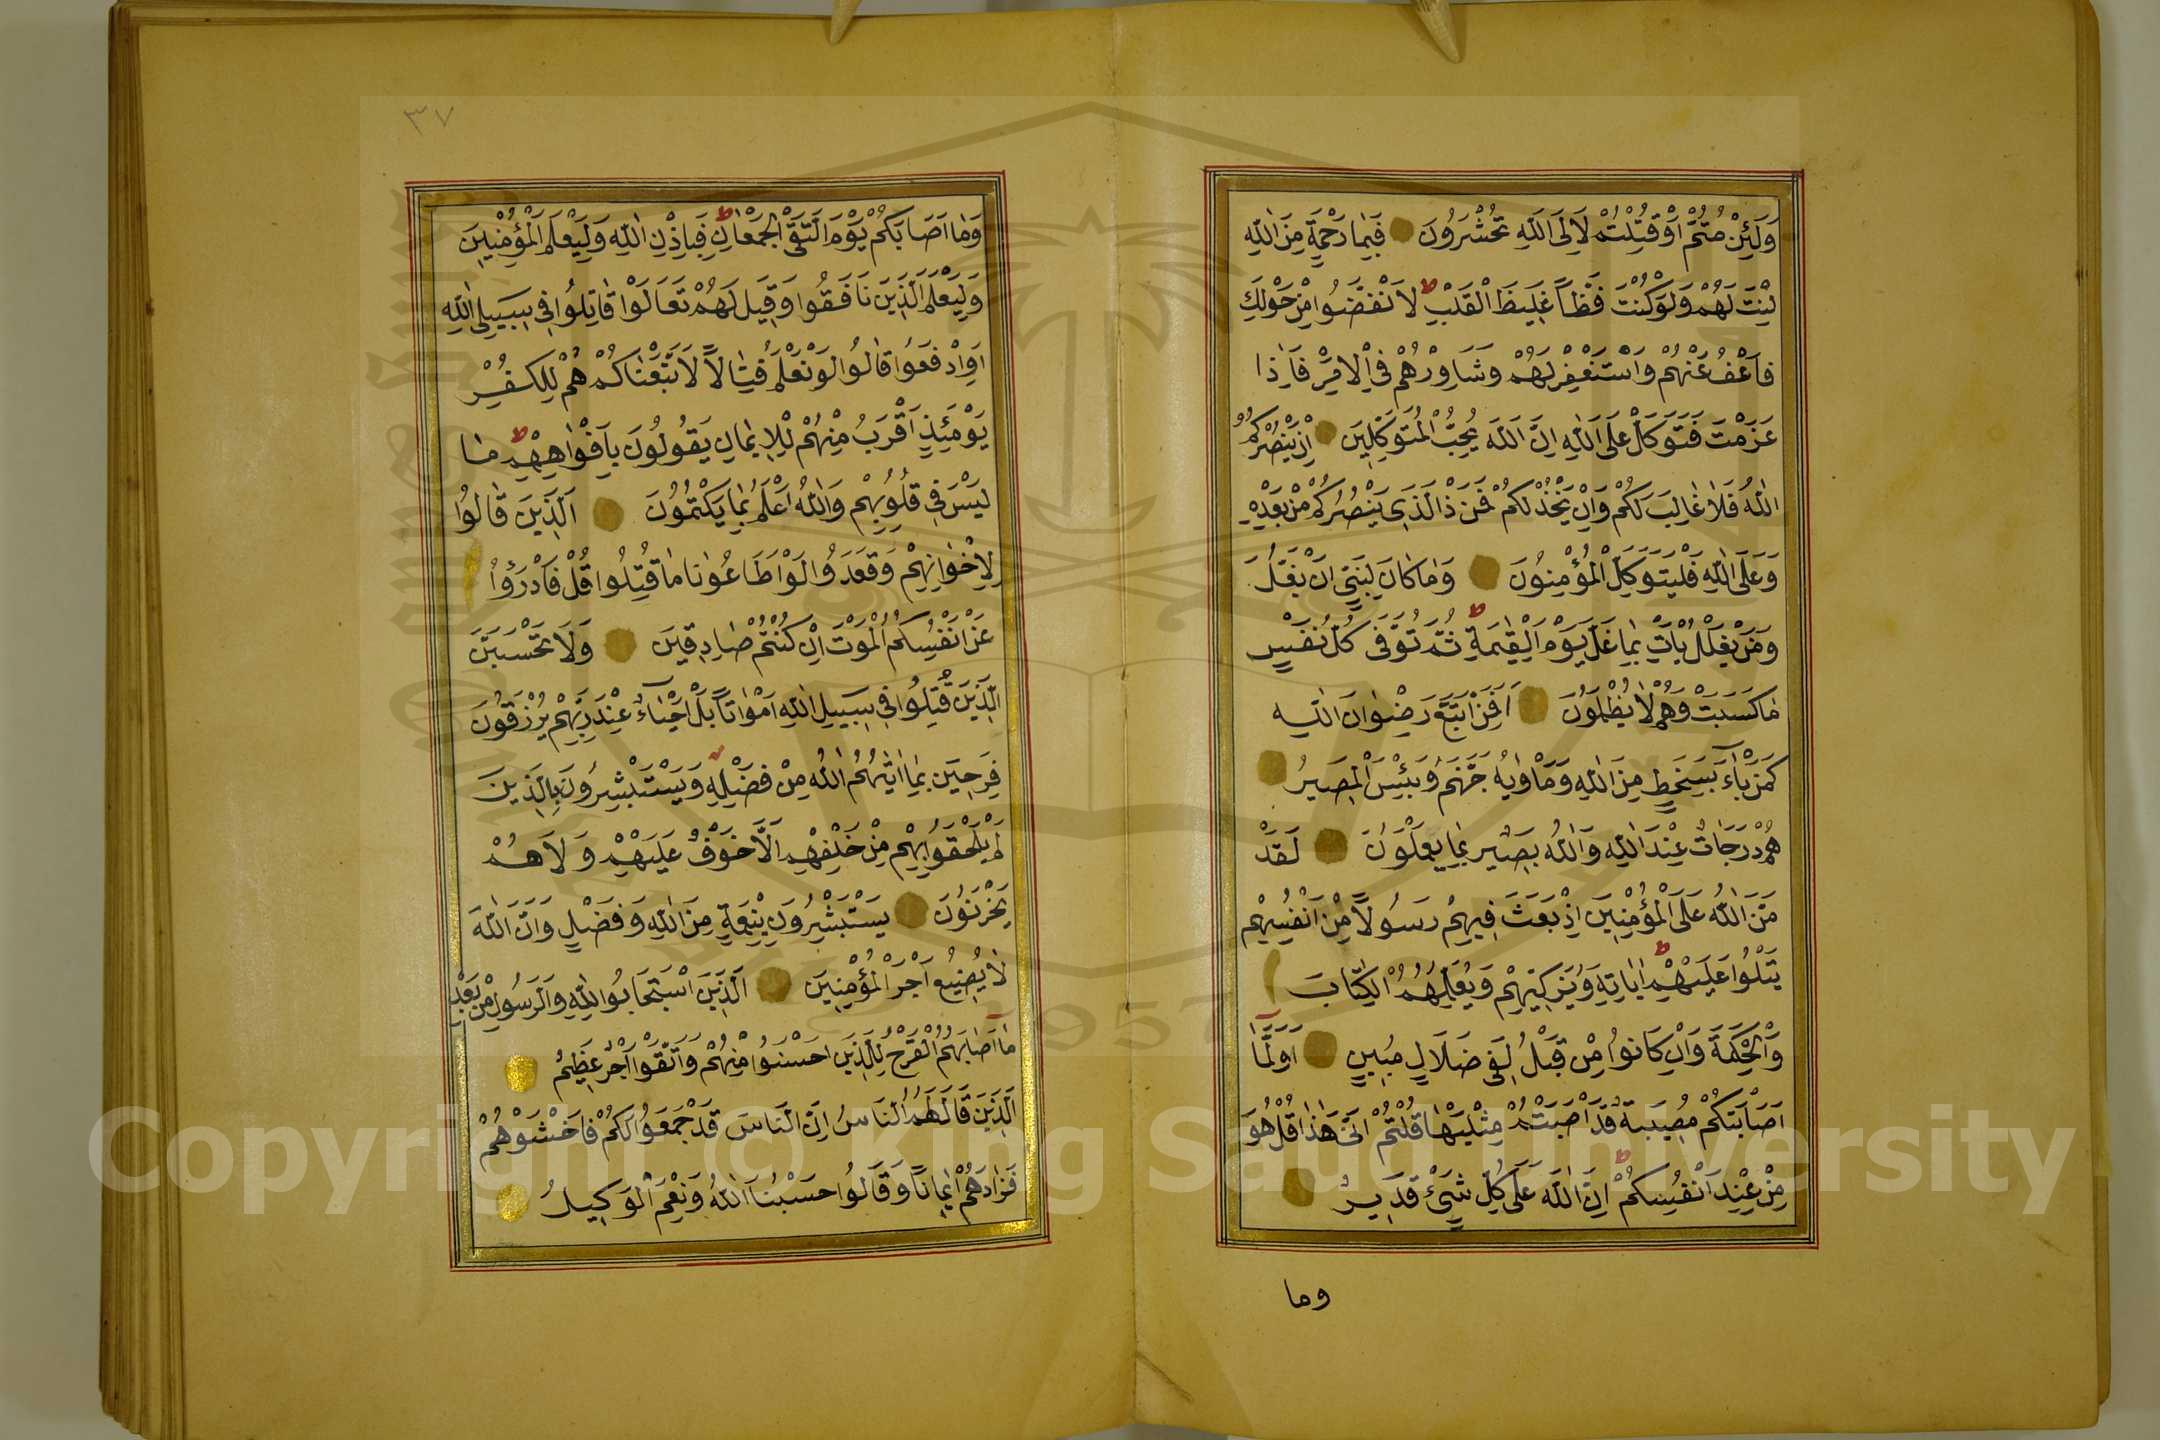 وَلَئِنْ مُتُّمْ اَوْ قُتِلْتُمْ لَاِلَى اللّٰهِ تُحْشَرُونَ فَبِمَا رَحْمَةٍ مِنَ اللّٰهِ
لِنْتَ لَهُمْ وَلَوْ كُنْتَ فَظًّا غَلِيظَ الْقَلْبِ ط لَانْفَضُّوا مِنْ حَوْلِكَ
فَاعْفُ عَنْهُمْ وَاسْتَغْفِرْ لَهُمْ وَشَاوِرْهُمْ فِي الْاَمْرِ فَاِذَا
عَزَمْتَ فَتَوَكَّلْ عَلَى اللّٰهِ اِنَّ اللّٰهَ يُحِبُّ الْمُتَوَكِّلِينَ اِنْ يَنْصُرْكُمُ
اللّٰهُ فَلَا غَالِبَ لَكُمْ وَاِنْ يَخْذُلْكُمْ فَمَنْ ذَا الَّذِي يَنْصُرُكُمْ مِنْ بَعْدِهِ
وَعَلَى اللّٰهِ فَلْيَتَوَكَّلِ الْمُؤْمِنُونَ وَمَا كَانَ لِنَبِيٍّ اَنْ يَغُلَّ
وَمَنْ يَغْلُلْ يَأْتِ بِمَا غَلَّ يَوْمَ الْقِيٰمَةِ ط ثُمَّ تُوَفّٰى كُلُّ نَفْسٍ
مَا كَسَبَتْ وَهُمْ لَا يُظْلَمُونَ اَفَمَنِ اتَّبَعَ رِضْوَانَ اللّٰهِ
كَمَنْ بَآءَ بِسَخَطٍ مِنَ اللّٰهِ وَمَأْوٰيهُ جَهَنَّمُ وَبِئْسَ الْمَصِيرُ
هُمْ دَرَجَاتٌ عِنْدَ اللّٰهِ وَاللّٰهُ بَصِيرٌ بِمَا يَعْمَلُونَ لَقَدْ
مَنَّ اللّٰهُ عَلَى الْمُؤْمِنِينَ اِذْ بَعَثَ فِيهِمْ رَسُولًا مِنْ اَنْفُسِهِمْ
يَتْلُوا عَلَيْهِمْ ط اٰيَاتِهِ وَيُزَكِّيهِمْ وَيُعَلِّمُهُمُ الْكِتَابَ
وَالْحِكْمَةَ وَاِنْ كَانُوا مِنْ قَبْلُ لَفِي ضَلَالٍ مُبِينٍ اَوَلَمَّا
اَصَابَتْكُمْ مُصِيبَةٌ قَدْ اَصَبْتُمْ مِثْلَيْهَا قُلْتُمْ اَنّٰى هٰذَا قُلْ هُوَ
مِنْ عِنْدِ اَنْفُسِكُمْ ط اِنَّ اللّٰهَ عَلٰى كُلِّ شَيْءٍ قَدِيرٌ
وما
٣٧
وَمَا اَصَابَكُمْ يَوْمَ الْتَقَى الْجَمْعَانِ ط فَبِاِذْنِ اللّٰهِ وَلِيَعْلَمَ الْمُؤْمِنِينَ
وَلِيَعْلَمَ الَّذِينَ نَافَقُوا وَقِيلَ لَهُمْ تَعَالَوْا قَاتِلُوا فِي سَبِيلِ اللّٰهِ
اَوِ ادْفَعُوا قَالُوا لَوْ نَعْلَمُ قِتَالًا لَاتَّبَعْنَاكُمْ هُمْ لِلْكُفْرِ
يَوْمَئِذٍ اَقْرَبُ مِنْهُمْ لِلْاِيمَانِ يَقُولُونَ بِاَفْوَاهِهِمْ ط مَا
لَيْسَ فِي قُلُوبِهِمْ وَاللّٰهُ اَعْلَمُ بِمَا يَكْتُمُونَ اَلَّذِينَ قَالُوا
لِاِخْوَانِهِمْ وَقَعَدُوا لَوْ اَطَاعُونَا مَا قُتِلُوا قُلْ فَادْرَؤُا
عَنْ اَنْفُسِكُمُ الْمَوْتَ اِنْ كُنْتُمْ صَادِقِينَ وَلَا تَحْسَبَنَّ
الَّذِينَ قُتِلُوا فِي سَبِيلِ اللّٰهِ اَمْوَاتًا بَلْ اَحْيَآءٌ عِنْدَ رَبِّهِمْ يُرْزَقُونَ
فَرِحِينَ بِمَا اٰتٰيهُمُ اللّٰهُ مِنْ فَضْلِهِ وَيَسْتَبْشِرُونَ بِالَّذِينَ
لَمْ يَلْحَقُوا بِهِمْ مِنْ خَلْفِهِمْ اَلَّا خَوْفٌ عَلَيْهِمْ وَلَا هُمْ
يَحْزَنُونَ يَسْتَبْشِرُونَ بِنِعْمَةٍ مِنَ اللّٰهِ وَفَضْلٍ وَاَنَّ اللّٰهَ
لَا يُضِيعُ اَجْرَ الْمُؤْمِنِينَ اَلَّذِينَ اسْتَجَابُوا لِلّٰهِ وَالرَّسُولِ مِنْ بَعْدِ
مَا اَصَابَهُمُ الْقَرْحُ لِلَّذِينَ اَحْسَنُوا مِنْهُمْ وَاتَّقَوْا اَجْرٌ عَظِيمٌ
اَلَّذِينَ قَالَ لَهُمُ النَّاسُ اِنَّ النَّاسَ قَدْ جَمَعُوا لَكُمْ فَاخْشَوْهُمْ
فَزَادَهُمْ اِيمَانًا وَقَالُوا حَسْبُنَا اللّٰهُ وَنِعْمَ الْوَكِيلُ
Copyright © King Saud University
1957